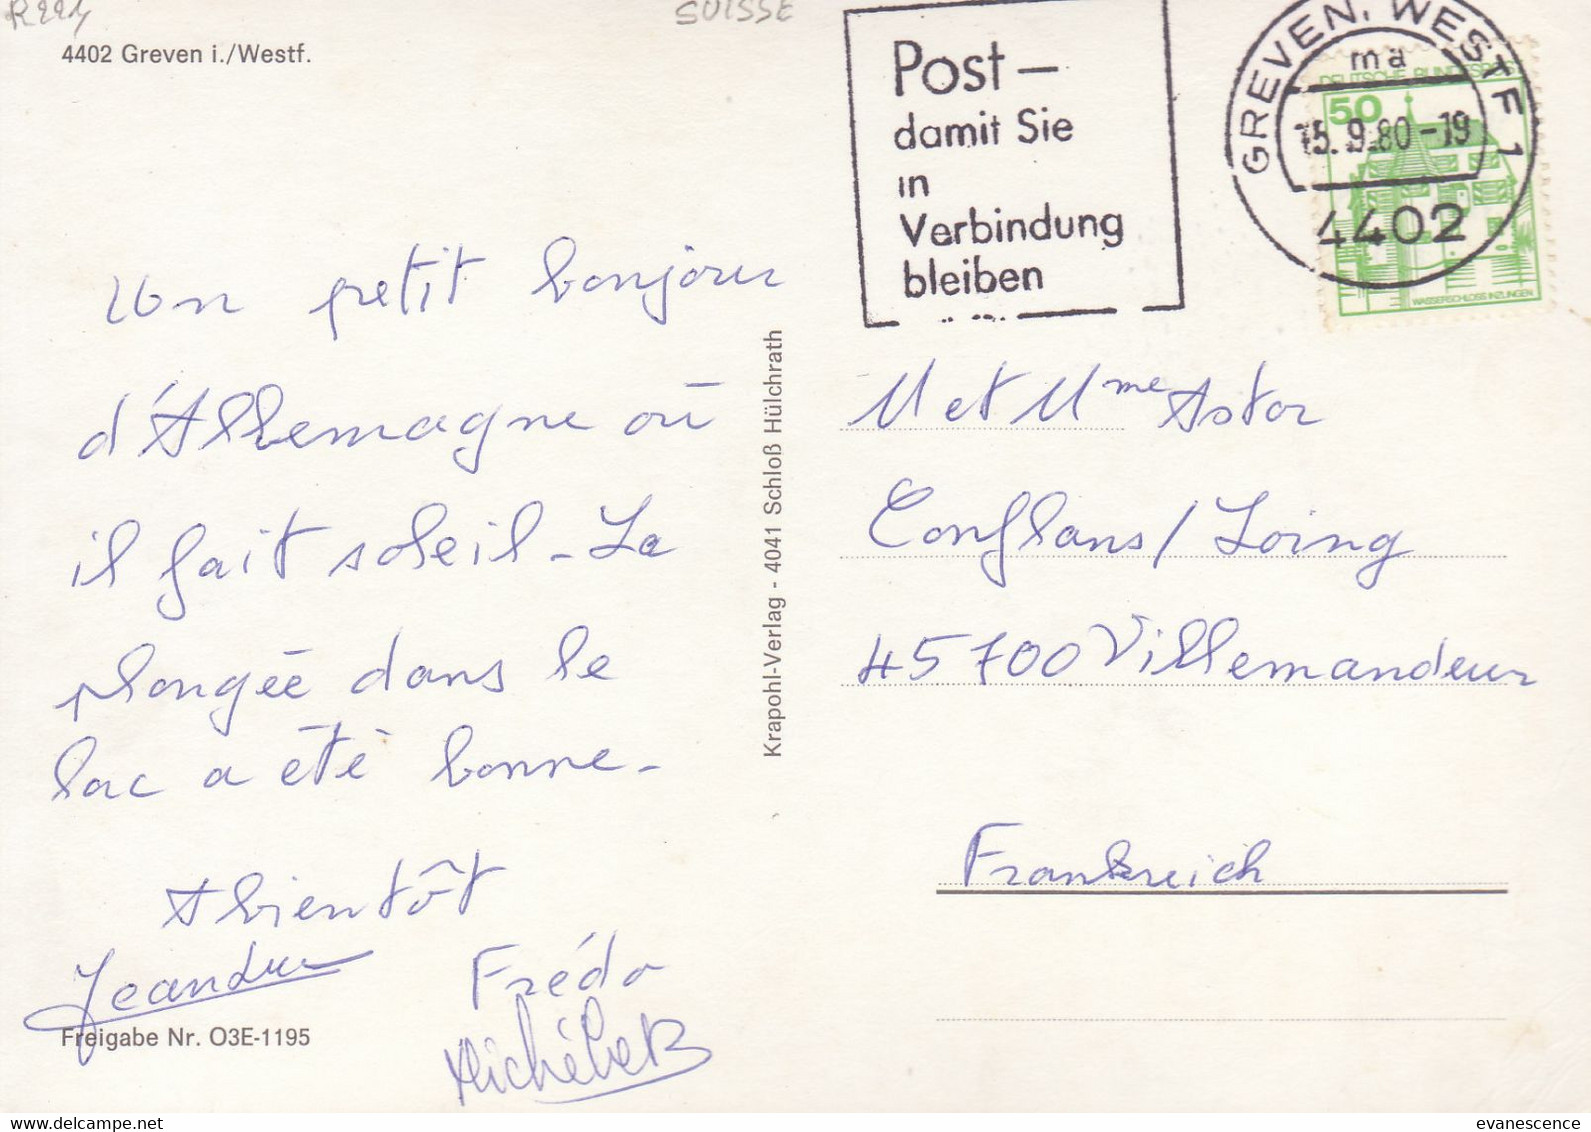 SUISSE
4402 Greven i./Westf.
Post –
damit Sie
in
Verbindung
bleiben
GREVEN, WESTF 1
ma
15.9.80-19
4402
DEUTSCHE BUNDESPOST
50
WASSERSCHLOSS INZLINGEN
Un petit bonjour
d'Allemagne où
il fait soleil - La
plongée dans le
lac a été bonne -
A bientôt
Frédo
Freigabe Nr. O3E-1195
Krapohl-Verlag - 4041 Schloß Hülchrath
M et Mme Astor
Conflans / Loing
45700 Villemandeur
Frankreich
evanescence